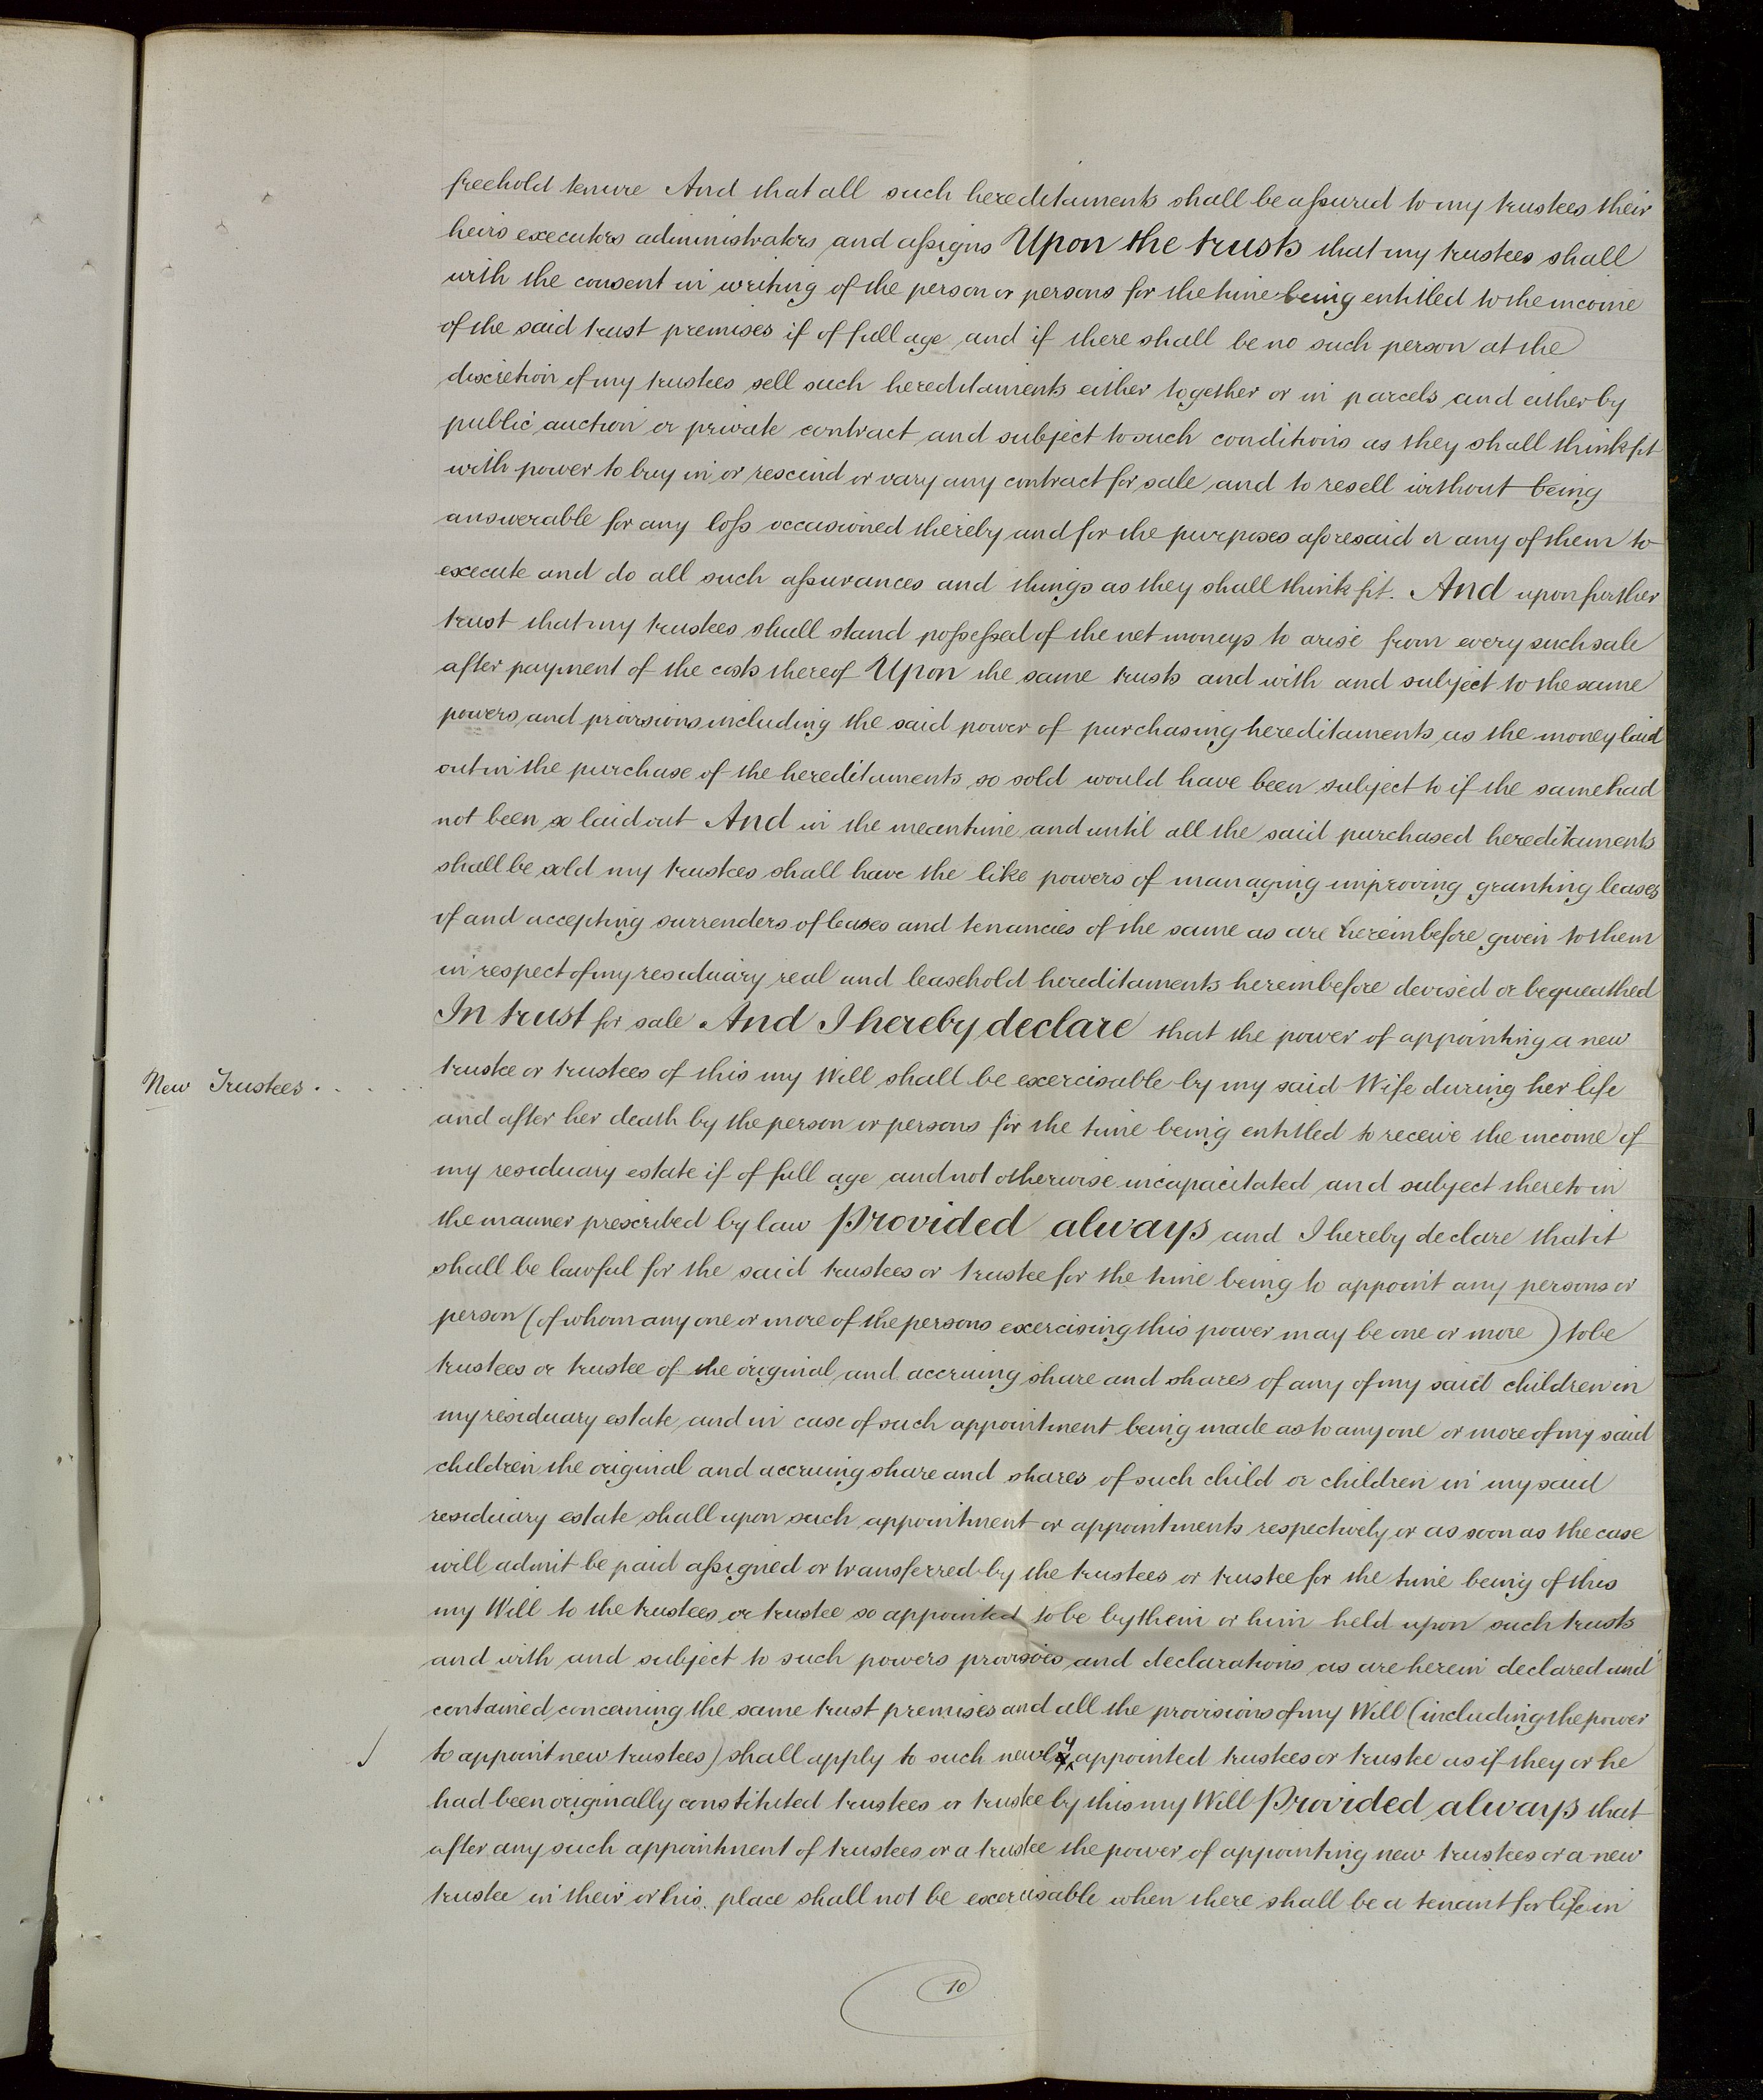 freehold tenure And that all such hereditaments shall be assured to my trustees their
heirs executors administrators and assigns Upon the trusts that my trustees shall
with the consent in writing of the person or persons for the time being entitled to the income
of the said trust premises if of full age and if there shall be no such person at the
discretion of my trustees sell such hereditaments either together or in parcels and either by
public auction or private contract and subject to such conditions as they shall think fit
with power to buy in or rescind or vary any contract for sale and to resell without being
answerable for any loss occasioned thereby and for the purposes aforesaid or any of them to
execute and do all such assurances and things as they shall think fit. And upon further
trust that my trustees shall stand possessed of the net moneys to arise from every such sale
after payment of the costs thereof Upon the same trusts and with and subject to the same
powers and provisions including the said power of purchasing hereditaments as the money laid
out in the purchase of the hereditaments so sold would have been subject to if the same had
not been so laid out And in the meantime and until all the said purchased hereditaments
shall be sold my trustees shall have the like powers of managing improving granting leases
of and accepting surrenders of leases and tenancies of the same as are hereinbefore given to them
in respect of my residuary real and leasehold hereditaments hereinbefore devised or bequeathed
In trust for sale And I hereby declare that the power of appointing a new
New Trustees . . . .
trustee or trustees of this my Will shall be exercisable by my said Wife during her life
and after her death by the person or persons for the time being entitled to receive the income of
my residuary estate if of full age and not otherwise incapacitated and subject thereto in
the manner prescribed by law Provided always and I hereby declare that it
shall be lawful for the said trustees or trustee for the time being to appoint any persons or
person (of whom any one or more of the persons exercising this power may be one or more) to be
trustees or trustee of the original and accruing share and shares of any of my said children in
my residuary estate and in case of such appointment being made as to any one or more of my said
children the original and accruing share and shares of such child or children in my said
residuary estate shall upon such appointment or appointments respectively or as soon as the case
will admit be paid assigned or transferred by the trustees or trustee for the time being of this
my Will to the trustees or trustee so appointed to be by them or him held upon such trusts
and with and subject to such powers provisoes and declarations as are herein declared and
contained concerning the same trust premises and all the provisions of my Will (including the power
to appoint new trustees) shall apply to such newly appointed trustees or trustee as if they or he
had been originally constituted trustees or trustee by this my Will Provided always that
after any such appointment of trustees or a trustee the power of appointing new trustees or a new
trustee in their or his place shall not be exercisable when there shall be a tenant for life in
10